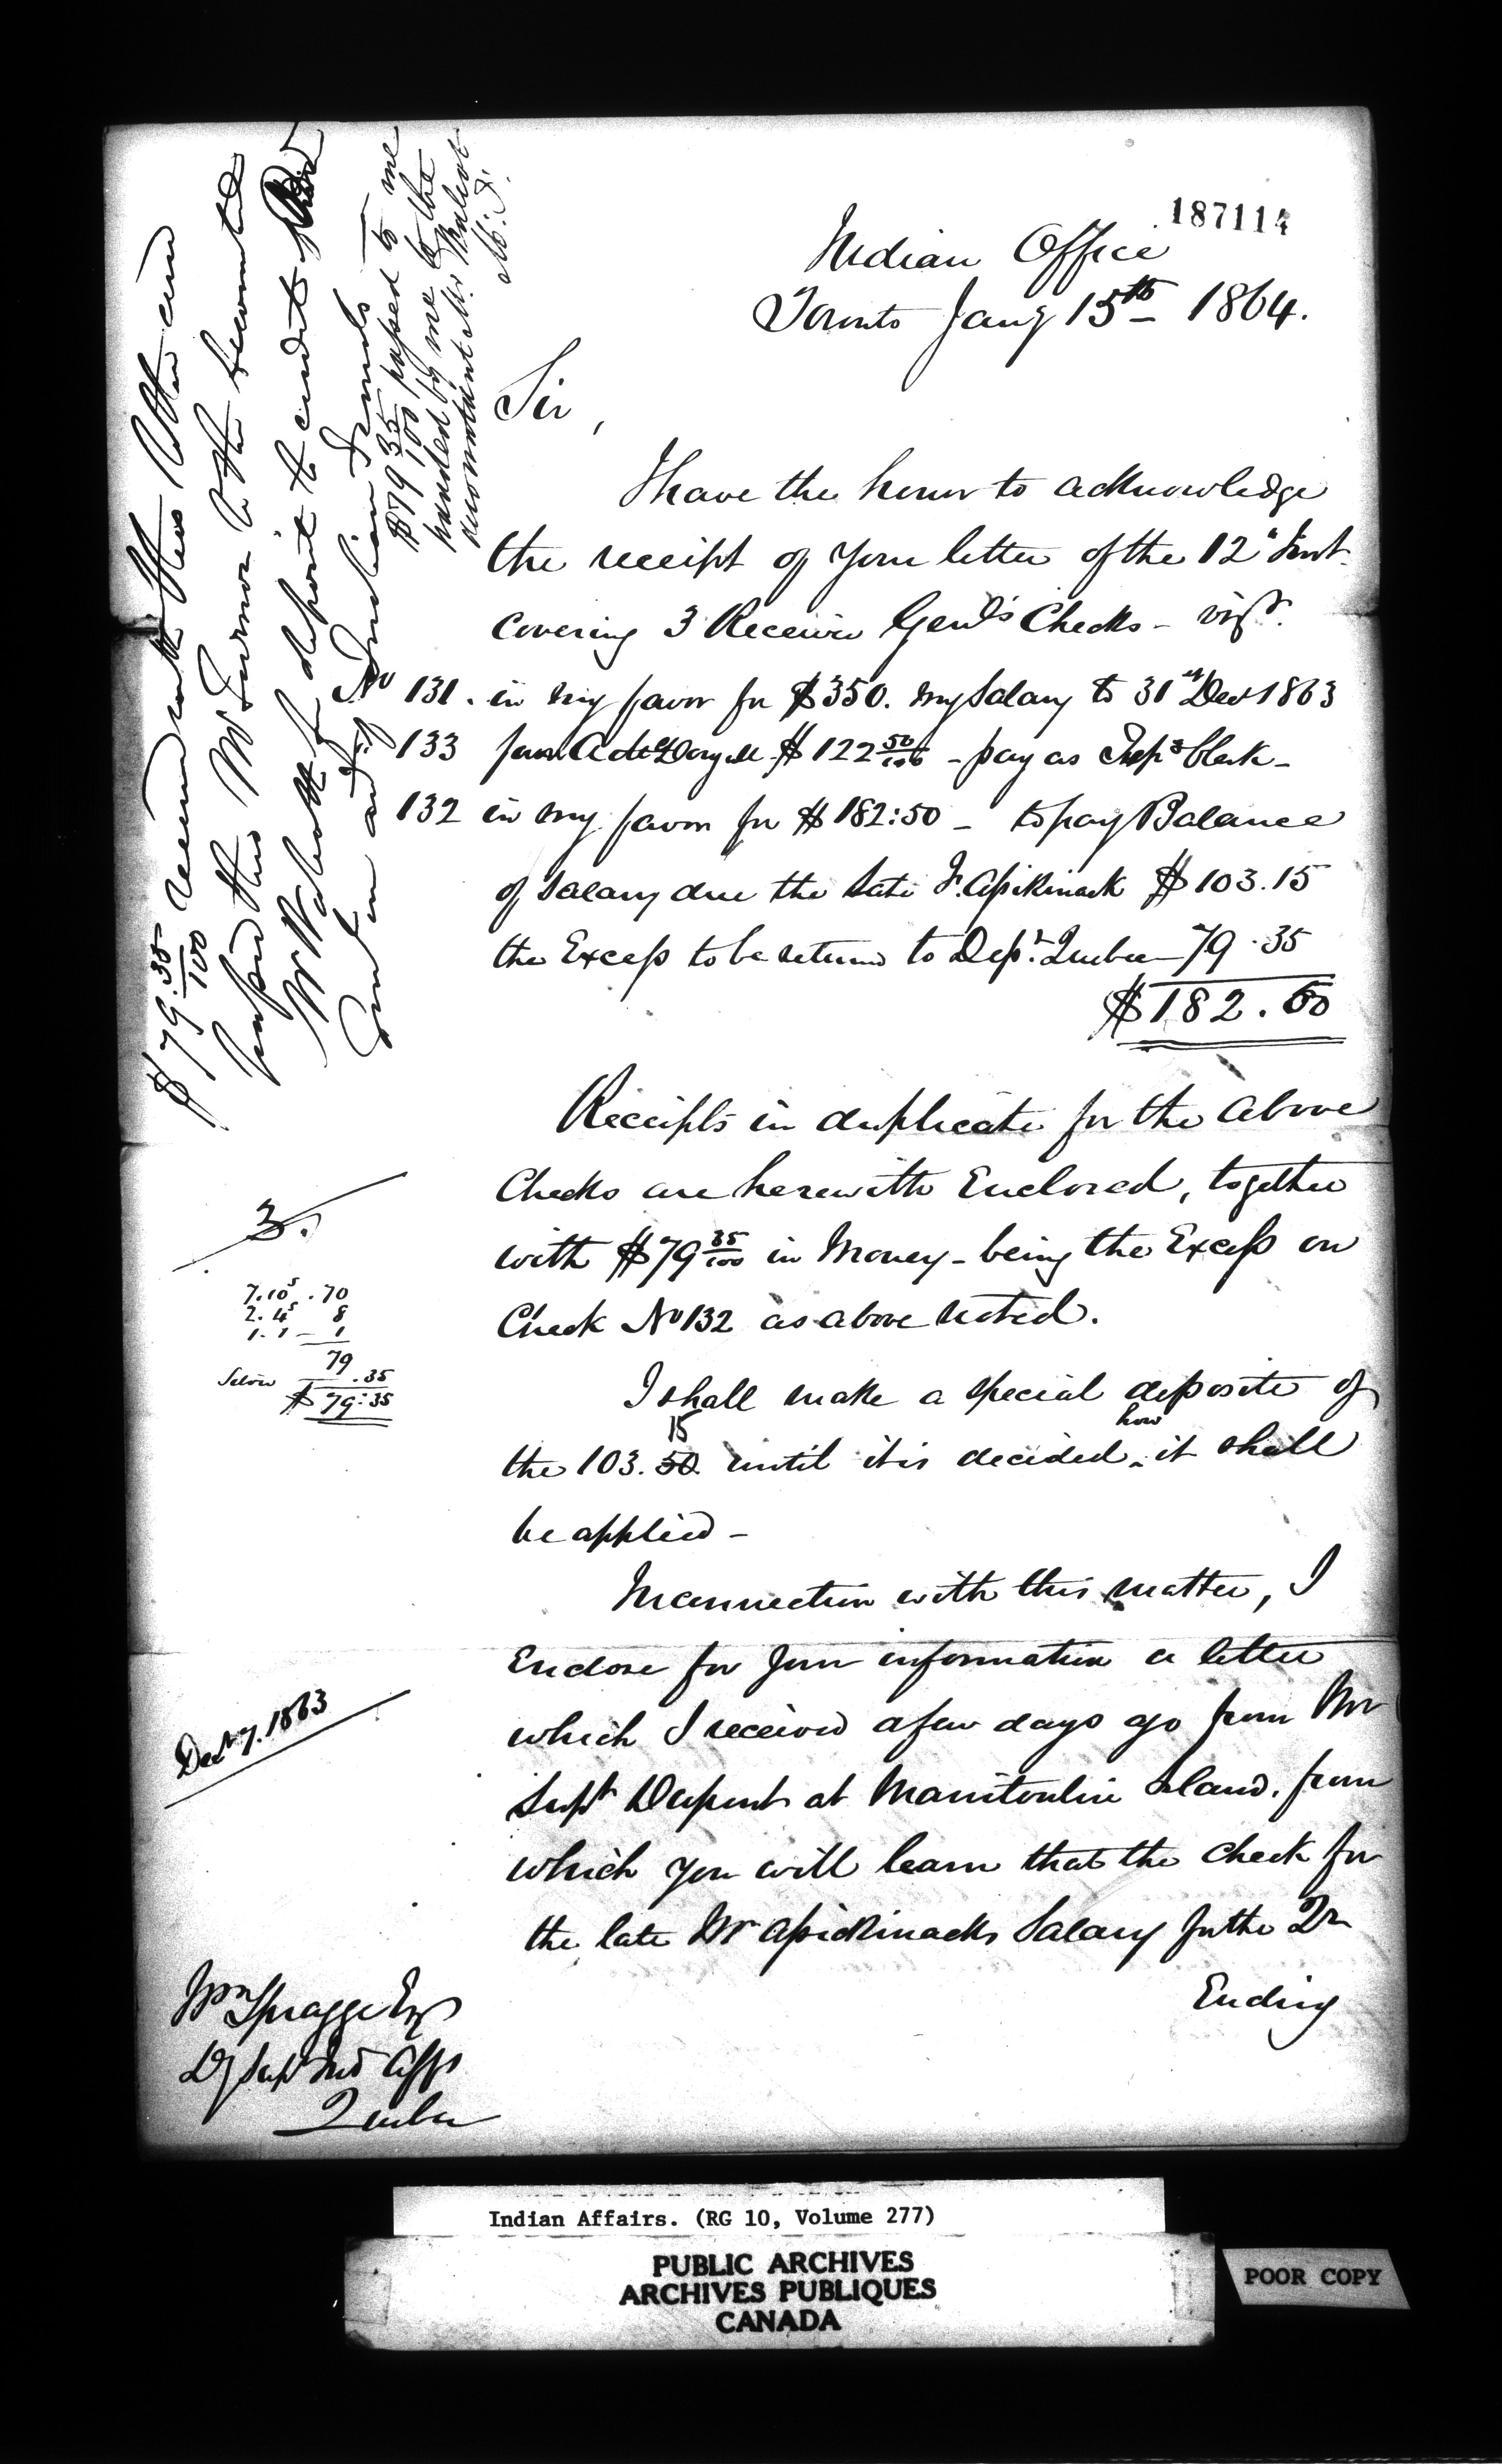 187114
Indian Office
Toronto Jany 15th 1864.
Sir,
I have the honor to acknowledge
the receipt of your letter of the 12" Inst.
covering 3 Receiver Genl's Checks - vizt.
No 131. in my favor for $350. my Salary to 31st Decr 1863
133 favor A McDougall $122 50/100 - pay as Clerk -
132 in my favor for $182:50 - to pay Balance
of Salary due the late F. Apikinack $103.15
the Excess to be returnd to Dept. Quebec - 79.35
$182.50
Receipts in duplicate for the above
Checks are herewith Enclosed, together
with $79 35/100 in Money - being the Excess on
Check No 132 as above noted.
I shall make a special deposite of
15
the 103. 50 until it is decided how it shall
be applied -
In connection with this matter, I
Enclose for your information a letter
which I received a few days ago from Mr
Supt Dupont at Manitoulin Island. from
which you will learn that the check for
the late Mr Apickinacks Salary for the Qr
Ending
$79.35/100 received with this letter and
passed this to the Accountant
Mr Walcott for deposit to credit of
Indian Funds
$79 35/100 passed to me
handed by me to the
accountant Mr Walcot
M. T.
3.
7. 10s . 70
2. 4s 8
1. 1 - 1
79
Silver .35
$79:35
Decr 7. 1863
Wm Spragge Esqr
Dy Supt Ind Affrs
Quebec
Indian Affairs. (RG 10, Volume 277)
PUBLIC ARCHIVES
ARCHIVES PUBLIQUES
CANADA
POOR COPY